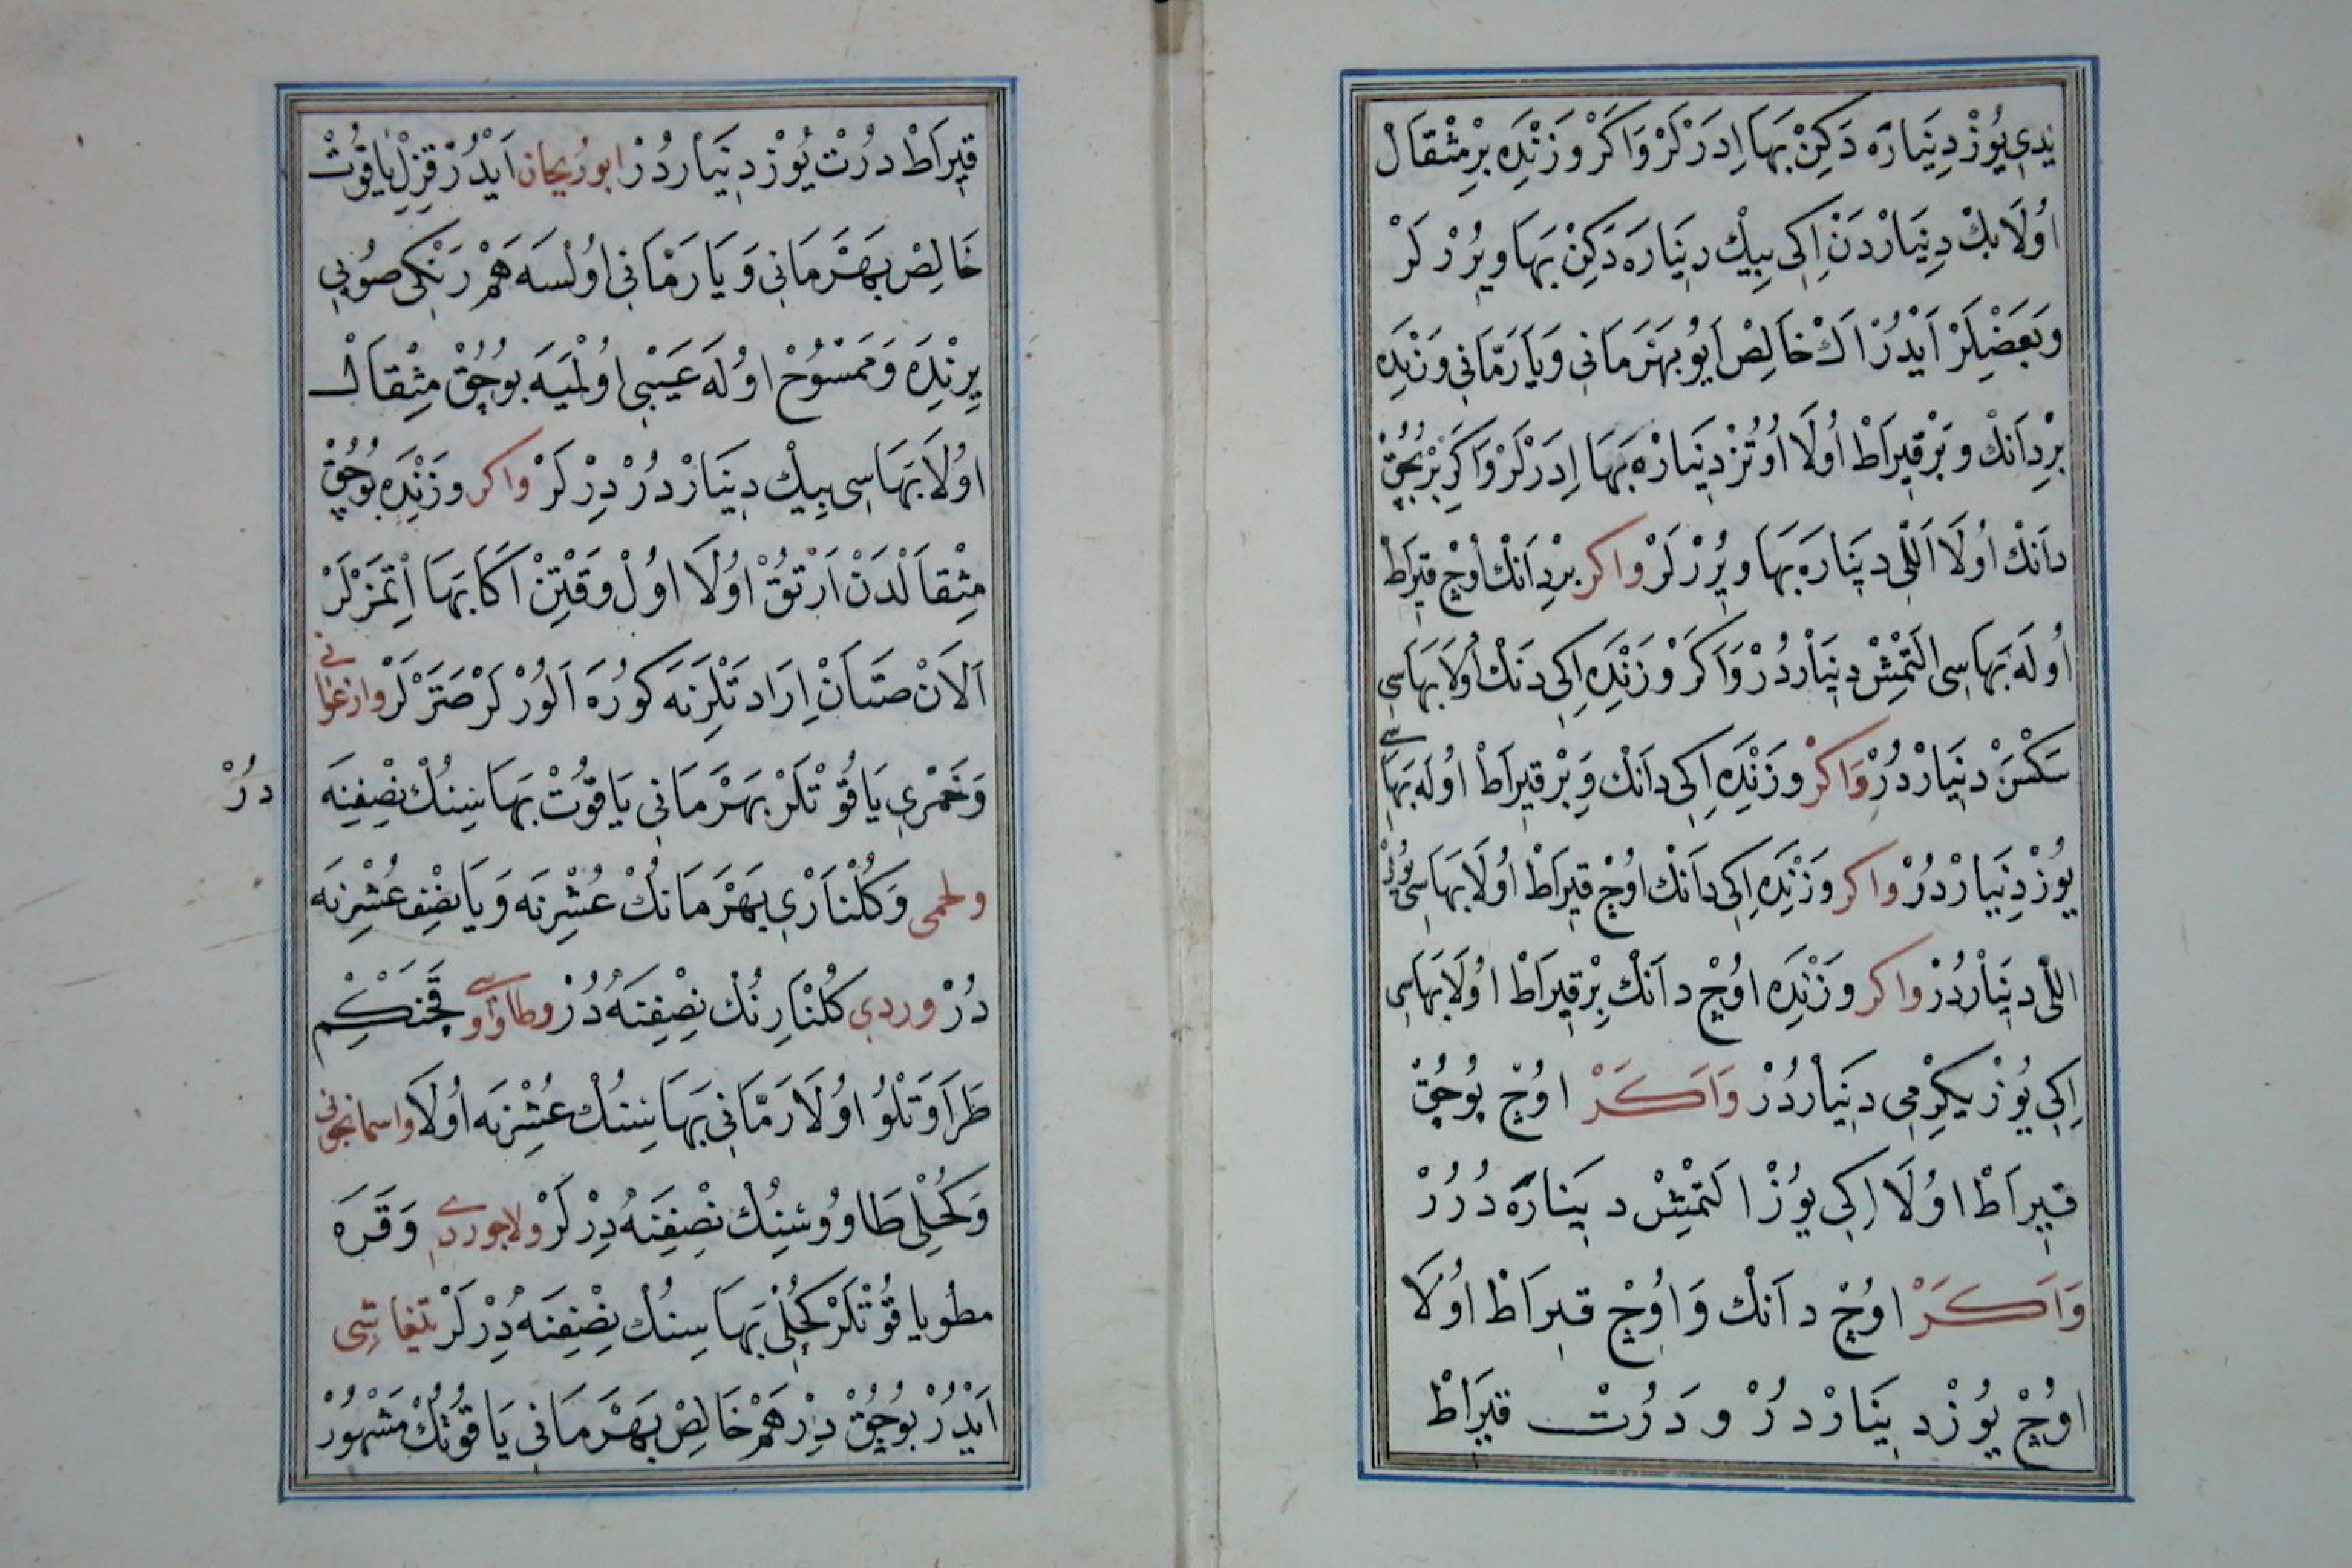 يدي يُوزْ دِينَارَه دَكِنْ بَهَا اِدَرْلَرْ وَاكَرْ وَزْنِدَه بِرْمِثْقَالْ
اُولَا بِكْ دِينَارْدَنْ اِكِى بِيكْ دِينَارَه دَكِنْ بَهَا وِيرُرْلَرْ
وَبَعْضِلَرْ اَيْدُرْ اَكْ خَالِصْ اَيُو بَهْرَمَانِي وَيَا رَمَّانِي وَزْنِدَه
بِرْدَانْكْ وَبِرْقِيرَاطْ اُولَا اُوتُزْ دِينَارَه بَهَا اِدَرْلَرْ وَاكَرْ بِرْبُچُقْ
دَانْكْ اُولَا اَللّى دِينَارَه بَهَا وِيرُرْلَرْ واكر بِرْدَانْكْ اُوچْ قِيرَاطْ
اُولَه بَهَاسِى اَلتْمِشْ دِينَارْدُرْ وَاكَرْ وَزْنِدَه اِكِى دَنْكْ اُولَا بَهَاسِى
سَكْسَنْ دِينَارْدُرْ وَاكَرْ وَزْنِدَه اِكِى دَانْكْ وَبِرْقِيرَاطْ اُولَه بَهَاسِى
يُوزْ دِينَارْدُرْ واكر وَزْنِدَه اِكِى دَانْكْ اُوچْ قِيرَاطْ اُولَا بَهَاسِى يُوزْ
اللّى دِينَارْدُرْ واكر وَزْنِدَه اُوچْ دَانْكْ بِرْقِيرَاطْ اُولَا بَهَاسِى
اِكِى يُوزْ يِكِرْمِى دِينَارْدُرْ وَاَكَرْ اوُچْ بُوچُقْ
قِيرَاطْ اُولَا اِكِى يُوزْ اَلتْمِشْ دِينَارَه دُرُرْ
وَاَكَرْ اوُچْ دَانْكْ وَاوُچْ قِيرَاطْ اُولَا
اوُچْ يُوزْ دِينَارْدُرْ وَدَرُتْ قِيرَاطْ
قِيرَاطْ دَرُتْ يُوزْ دِينَارْدُرْ ابو رُيحان اَيْدُرْ قِزِلْ يَاقُوتْ
خَالِصْ بَهْرَمَانِي وَيَا رَمَّانِي اوُلسَه هَمْ رَنْكِى صُويِى
يِرِنْدَه وَمَمْسُوحْ اوُلَه عَيْبِى اوُلْمَيَه بُوچُقْ مِثْقَالْ
اوُلَا بَهَاسِى بِيكْ دِينَارْدُرْ دِرْلَرْ واكر وَزْنِدَه بُوچُقْ
مِثْقَالْدَنْ اَرْتُقْ اوُلَا اوُلْ وَقْتِنْ اَكَا بَهَا اِتْمَزْلَرْ
اَلَانْ صَتَانْ اِرَادَتْلِرِنَه كوُرَه اَلوُرْلَرْ صَتَرْلَرْ وارغوانى
وَخَمْرِي يَاقُوتْلَرْ بَهْرَمَانِي يَاقُوتْ بَهَاسِنُكْ نِصْفِنَه دُرْ
ولحمى وَكُلْنَارِي بَهْرَمَانُكْ عُشْرِنَه وَيَا نِصْفِ عُشْرِنَه
دُرْ ووردي كُلْنَارِنُكْ نِصْفِنَه دُرْ وطاووسى
طَرَاوَتْلُو اُولَا رَمَّانِي بَهَاسِنُكْ عُشْرِنَه اُولَا واسمانجونى
وَكُحْلِى طَاووُسِنِكْ نِصْفِنَه دِرْلَرْ ولاجوردى وَقَرَه
مطويا قُوتْلَرْ كُحْلِى بَهَاسِنُكْ نِصْفِنَه دِرْلَرْ تيفاشى
اَيْدُرْ بُوچُقْ دِرْهَمْ خَالِصْ بَهْرَمَانِي يَاقُوتُكْ مَشْهُورْ